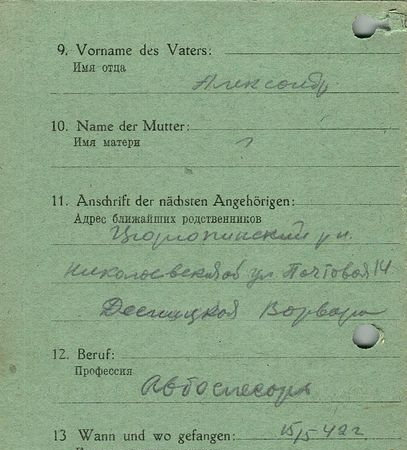 9. Vorname des Vaters:
Имя отца
Александр
10. Name der Mutter:
Имя матери
?
11. Anschrift der nächsten Angehörigen:
Адрес ближайших родственников
Цюрюпинский р-н.
Николаевская об ул. Почтовая 14
Десницкая Варвара
12. Beruf:
Профессия
Автослесарь
13 Wann und wo gefangen: 15/5-42 г.